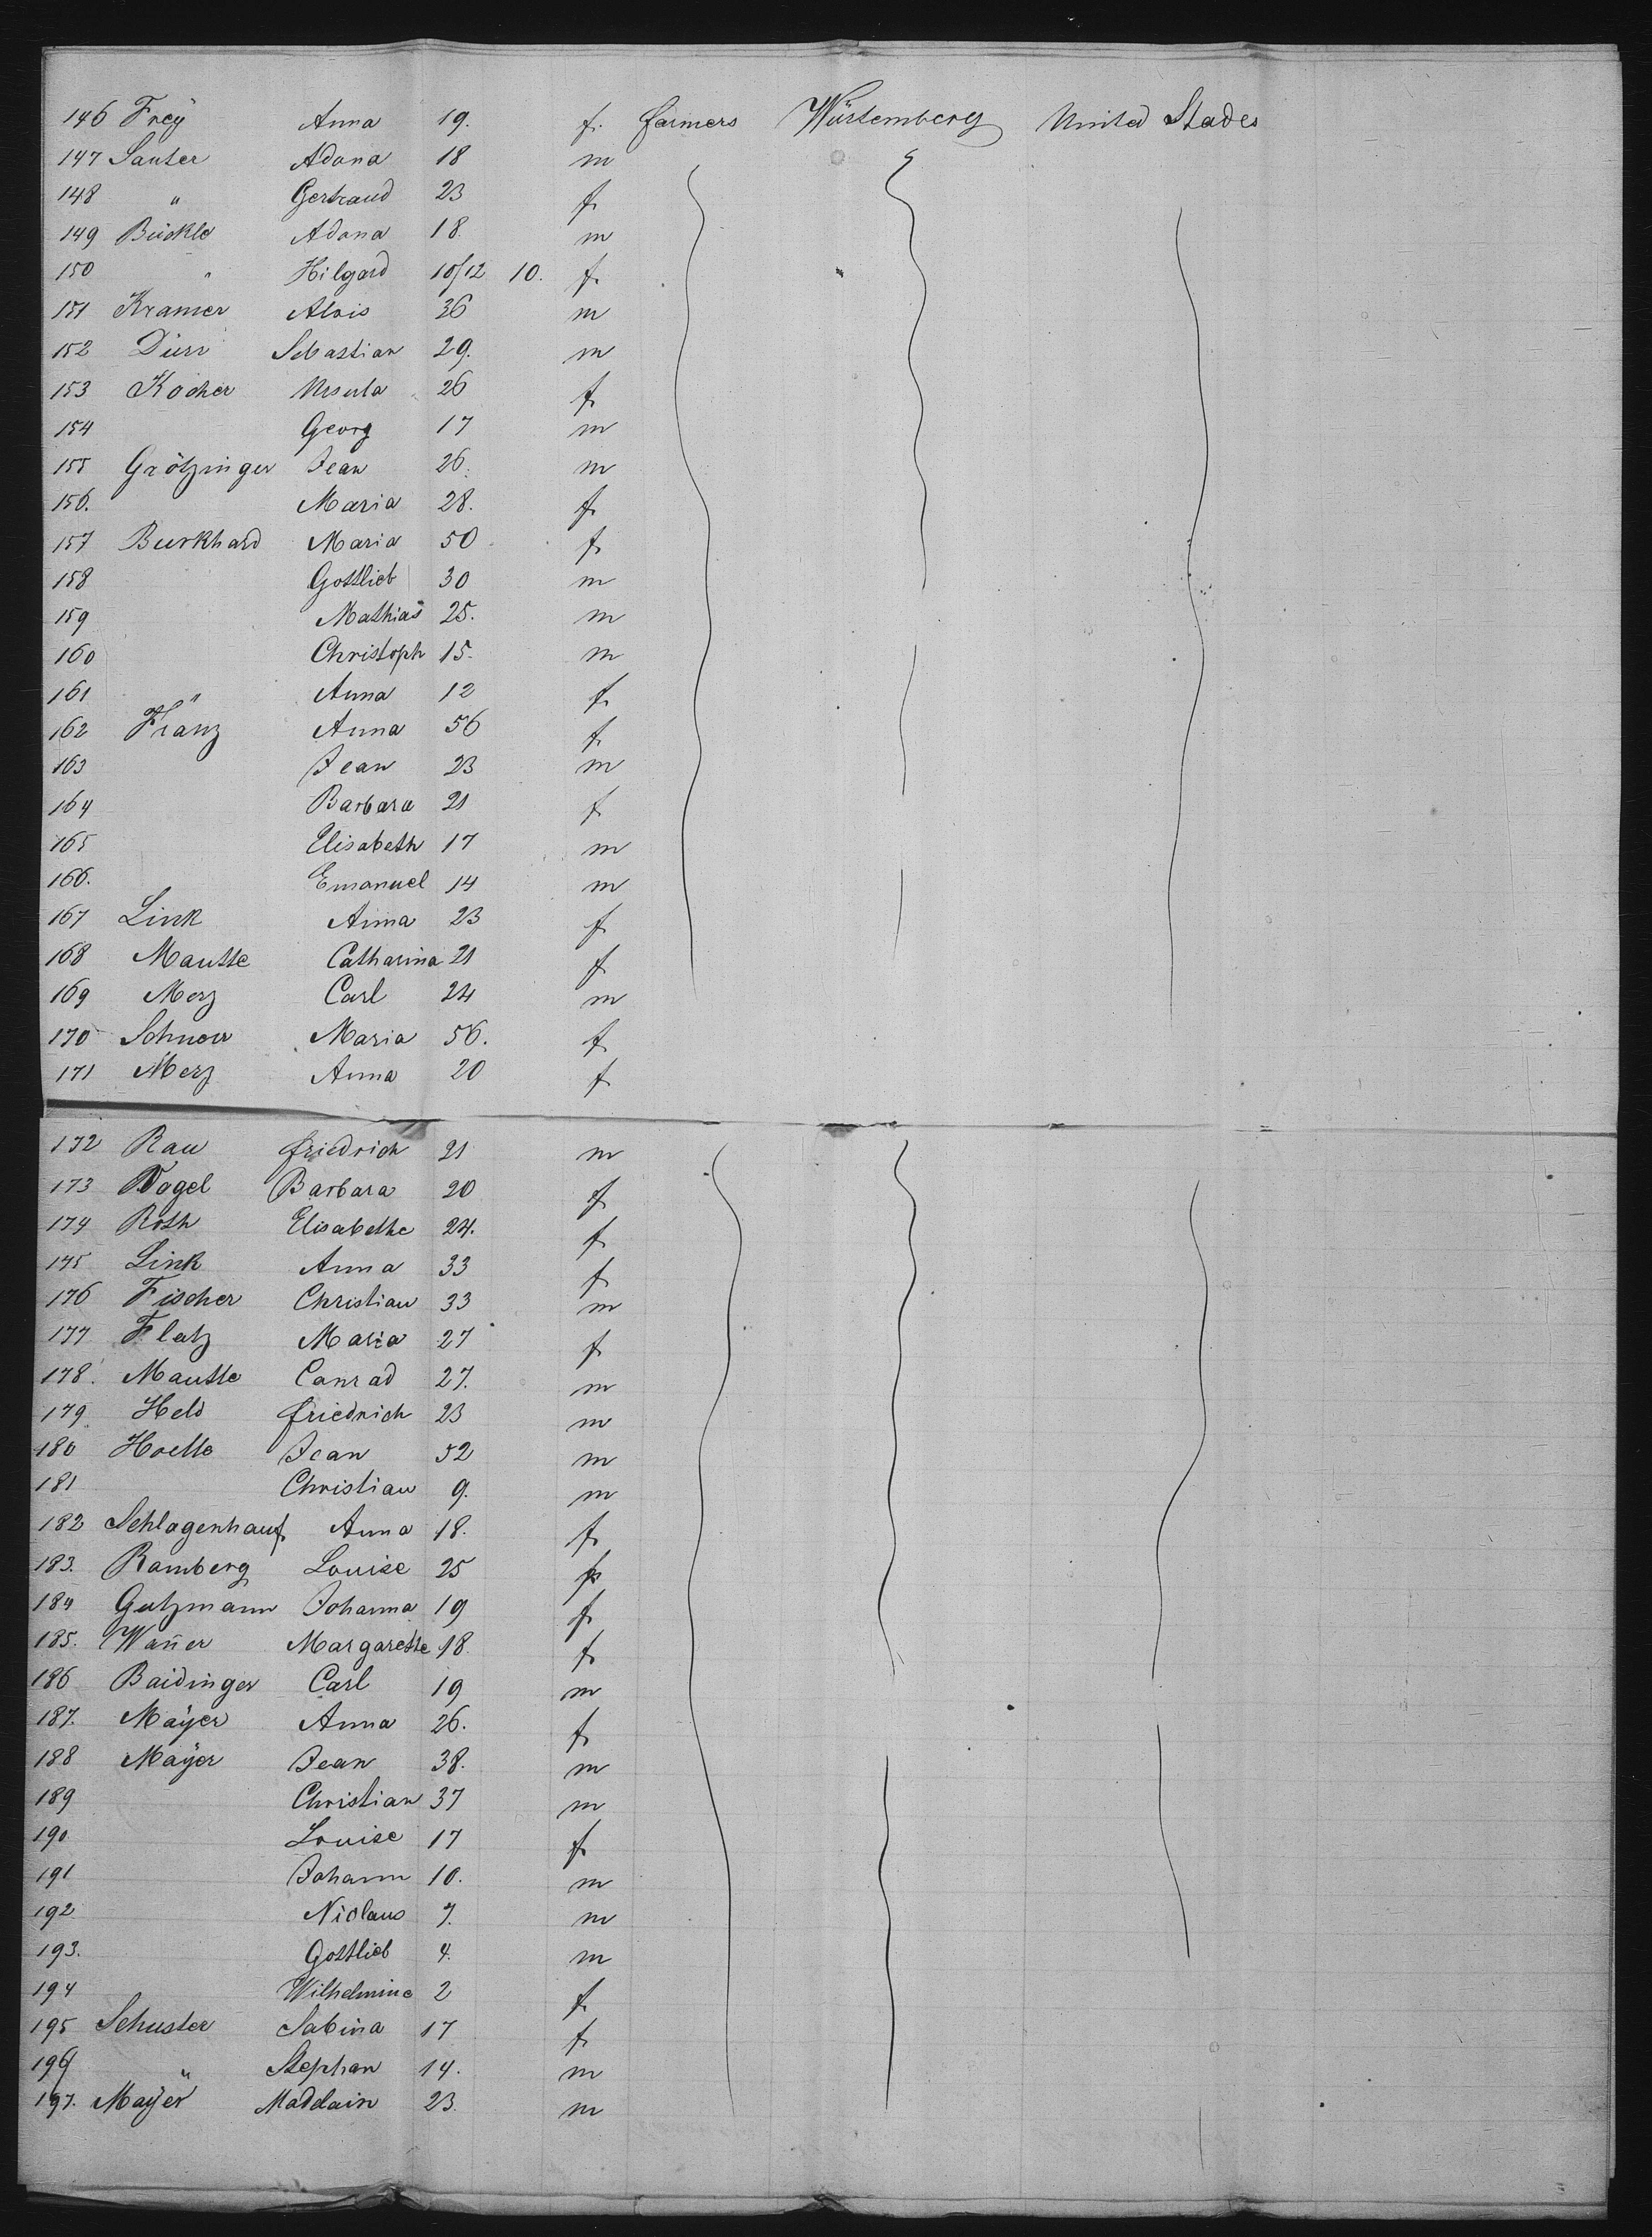 146 Frey Anna 19. f. farmers Würtemberg United Stades
147 Sauter Adana 18 m
148 " Gertraud 23 f
149 Bückle Adana 18 m
150 " Hilgard 10/12 10. f.
151 Kramer Alois 36 m
152 Dürr Sebastian 29. m
153 Kocher Ursula 26 f
154 Georg 17 m
155 Grötzinger Jean 26. m
156. Maria 28. f
157 Burkhard Maria 50 f
158 Gottlieb 30 m
159 Mathias 25. m
160 Christoph 15. m
161 " Anna 12 f
162 Franz Anna 56 f
163 Jean 23 m
164 Barbara 21 f
165 Elisabeth 17 m
166. Emanuel 14 m
167 Link Anna 23 f
168 Mautte Catharina 21 f
169 Merz Carl 24 m
170 Maria 56. f
171 Merz Anna 20 f
172 Rau friedrich 21 m
173 Vogel Barbara 20 f
174 Roth Elisabethe 24. f
175 Link Anna 33 f
176 Fischer Christian 33 m
177 Flatz Maria 27 f
178. Mautte Conrad 27. m
179 Held friedrich 23 m
180 Hoelle Jean 52 m
181 Christian 9. m
182 Schlagenhauf Anna 18. f
183. Ramberg Louise 25 f
184 Gutzmann Johanna 19 f
185. Wañer Margarethe 18. f
186 Baidinger Carl 19 m
187. Mayer Anna 26. f
188 Mayer Jean 38. m
189 Christian 37 m
190 Louise 17 f
191 Johann 10. m
192 Niclaus 7. m
193. Gottlieb 4. m
194 Wilhelmine 2 f
195 Schuster Sabina 17 f
196 " Stephan 14. m
197. Mayer Madelain 23. m